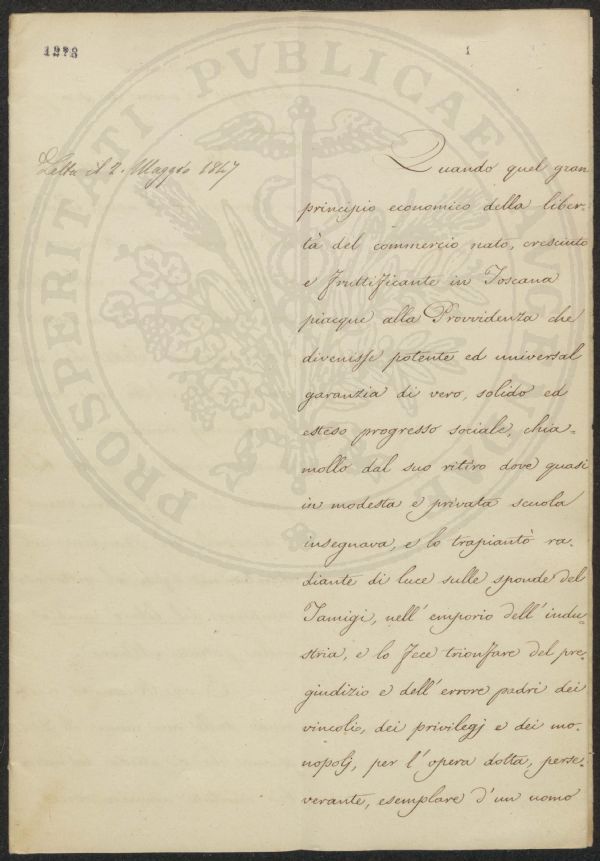 1278
1
Letta il 2. Maggio 1847
Quando quel gran
principio economico della liber-
tà del commercio nato, cresciuto
e fruttificante in Toscana
piacque alla Provvidenza che
divenisse potente ed universal
garanzia di vero, solido ed
esteso progresso sociale, chia-
mollo dal suo ritiro dove quasi
in modesta e privata scuola
insegnava, e lo trapiantò ra-
diante di luce sulle sponde del
Tamigi, nell' emporio dell' indu-
stria, e lo fece trionfare del pre-
giudizio e dell' errore padri dei
vincoli, dei privilegj e dei mo-
nopolj, per l' opera dotta, perse-
verante, esemplare d' un uomo
PROSPERITATI PVBLICAE